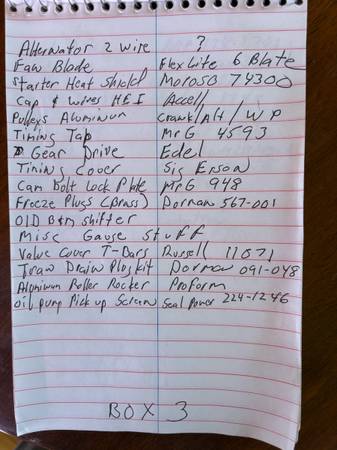 Alternator 2 wire ?
Faw Blade Flexlite 6 Blate
Starter Heat Shield Moroso 74300
Cap & wires HEI Accell
Pulleys Aluminun Crank/Alt/WP
Timing Tap MrG 4593
Gear Drive Edel
Tining Cover Sig Erson
Cam bolt Lock Plate MrG 948
Freeze Plugs (brass) Dorman 567-001
OLD B&M shifter
Misc Gauge Stuff
Valve Cover T-Bars Russell 11071
Draw Plug kit Dorman 091-048
Aluminum Roller Rocker Proform
oil pump Pick up Screen Seal Power 224-1246
BOX 3